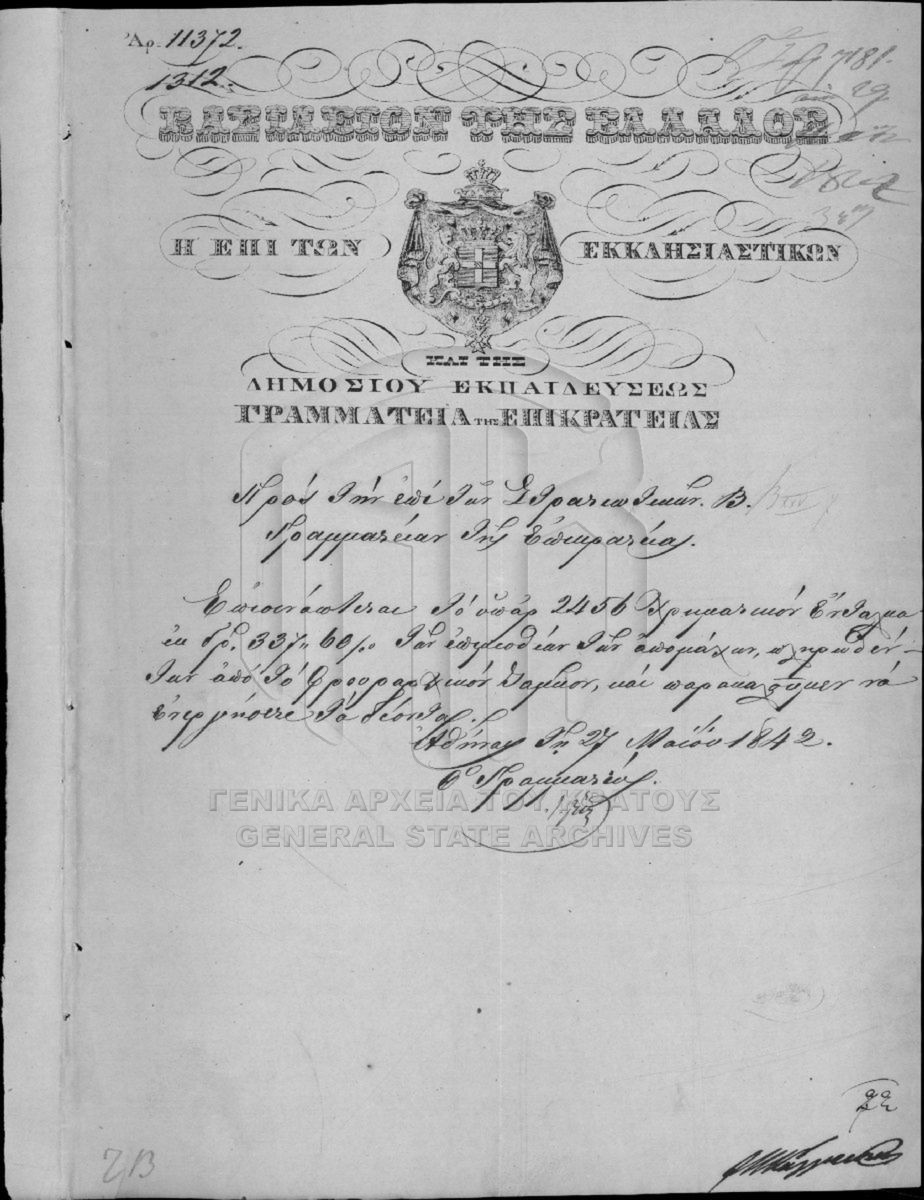 Ἀρ. 11372.
1312.
7181.
29
ΒΑΣΙΛΕΙΟΝ ΤΗΣ ΕΛΛΑΔΟΣ
Η ΕΠΙ ΤΩΝ ΕΚΚΛΗΣΙΑΣΤΙΚΩΝ
ΚΑΙ ΤΗΣ
ΔΗΜΟΣΙΟΥ ΕΚΠΑΙΔΕΥΣΕΩΣ
ΓΡΑΜΜΑΤΕΙΑ ΤΗΣ ΕΠΙΚΡΑΤΕΙΑΣ
Πρὸς τὴν ἐπὶ τῶν Στρατιωτικῶν Β.
Γραμματείαν τῆς Ἐπικρατείας.
Ἐπισυνάπτεται τὸ ὑπ' ἀρ 2456 Χρηματικὸν Ἔνταλμα
ἐκ δρ. 337,, 60/0 τῶν ἐπιμισθίων τῶν ἀπομάχων, πληρωθέν-
των ἀπὸ τὸ Φρουραρχικὸν Ταμεῖον, καὶ παρακαλοῦμεν νὰ
ἐνεργήσετε τὰ δέοντα.
Ἀθήνας τῇ 27 Μαΐου 1842.
Ὁ Γραμματεύς.
ΓΕΝΙΚΑ ΑΡΧΕΙΑ ΤΟΥ ΚΡΑΤΟΥΣ
GENERAL STATE ARCHIVES